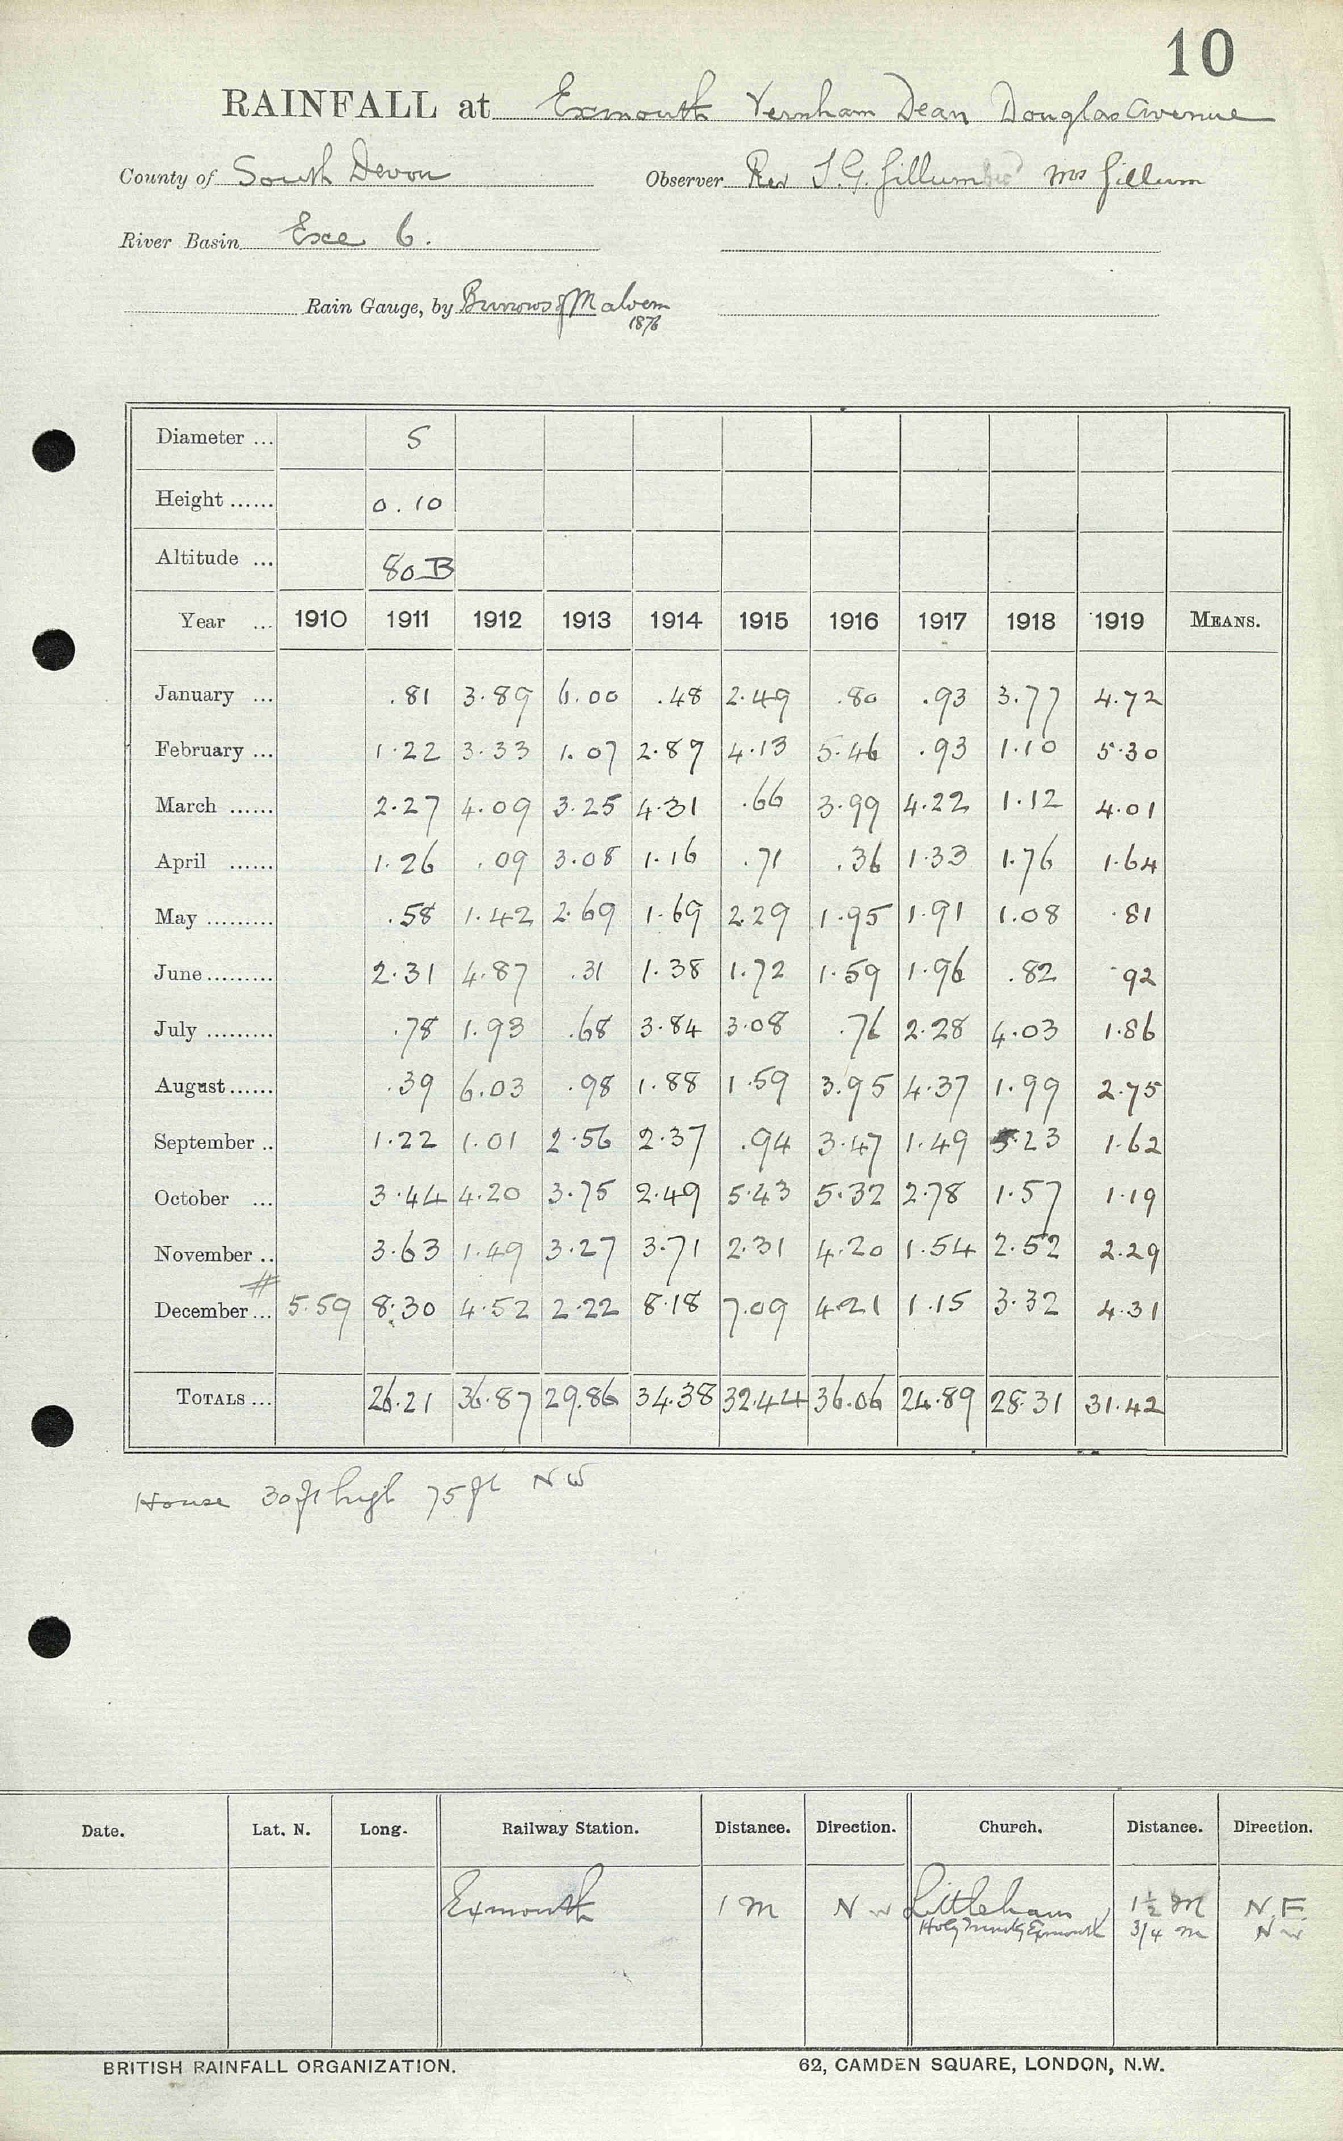 10
RAINFALL at Exmouth Vernham Dean Douglas Avenue
County of South Devon Observer Rev S. G. Gillum Mrs Gillum
River Basin Exe 6.
Rain Gauge, by Burrows of Malvern
1876
Diameter ... 5
Height ...... 0.10
Altitude ... 80 B
Year ... 1910 1911 1912 1913 1914 1915 1916 1917 1918 1919 MEANS.
January ... .81 3.89 6.00 .48 2.49 .80 .93 3.77 4.72
February ... 1.22 3.33 1.07 2.87 4.13 5.46 .93 1.10 5.30
March ...... 2.27 4.09 3.25 4.31 .66 3.99 4.22 1.12 4.01
April ...... 1.26 .09 3.08 1.16 .71 .36 1.33 1.76 1.64
May ......... .58 1.42 2.69 1.69 2.29 1.95 1.91 1.08 .81
June ......... 2.31 4.87 .31 1.38 1.72 1.59 1.96 .82 .92
July ......... .78 1.93 .68 3.84 3.08 .76 2.28 4.03 1.86
August ...... .39 6.03 .98 1.88 1.59 3.95 4.37 1.99 2.75
September .. 1.22 1.01 2.56 2.37 .94 3.47 1.49 5.23 1.62
October ... 3.44 4.20 3.75 2.49 5.43 5.32 2.78 1.57 1.19
November .. 3.63 1.49 3.27 3.71 2.31 4.20 1.54 2.52 2.29
#
December ... 5.59 8.30 4.52 2.22 8.18 7.09 4.21 1.15 3.32 4.31
TOTALS ... 26.21 36.87 29.86 34.38 32.44 36.06 24.89 28.31 31.42
House 30 ft high 75 ft NW
Date. Lat. N. Long. Railway Station. Distance. Direction. Church. Distance. Direction.
Exmouth 1 M NW Littleham 1½ M N.E.
Holy Trinity Exmouth 3/4 m NW
BRITISH RAINFALL ORGANIZATION. 62, CAMDEN SQUARE, LONDON, N.W.